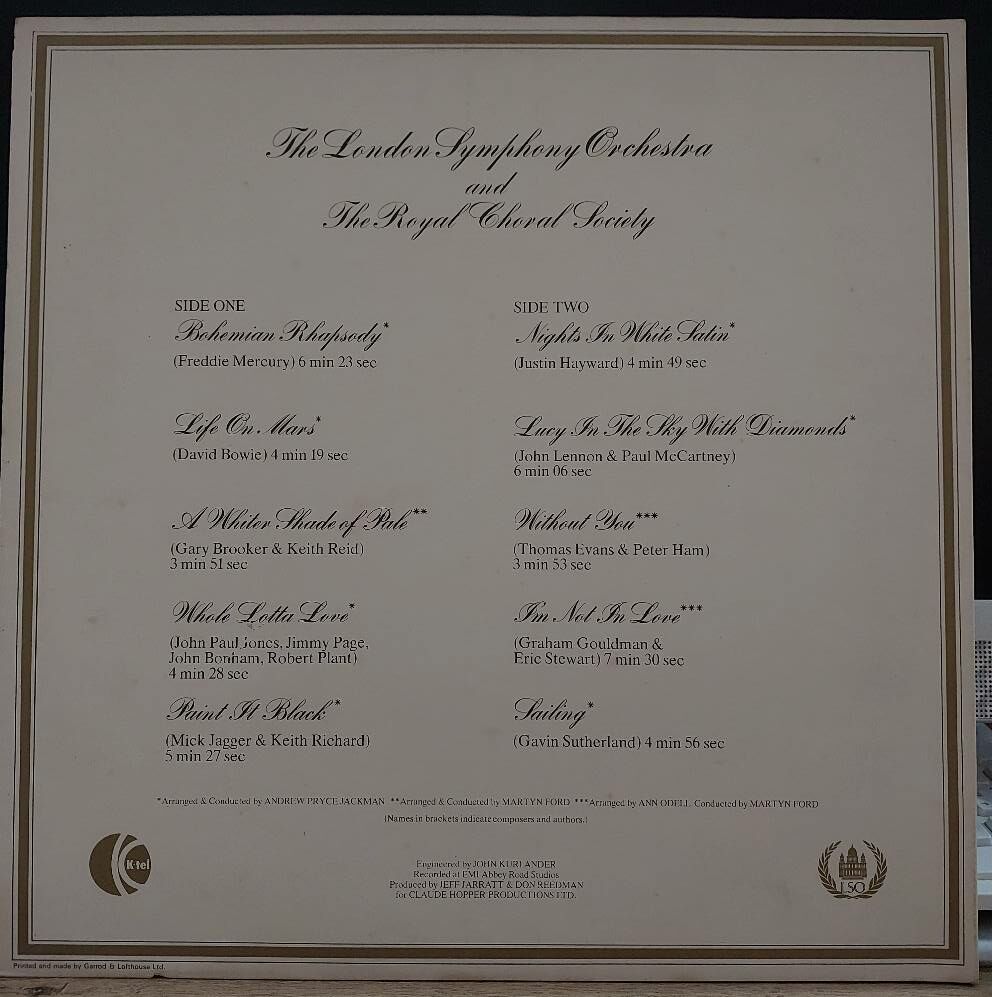 The London Symphony Orchestra
and
The Royal Choral Society
SIDE ONE
Bohemian Rhapsody*
(Freddie Mercury) 6 min 23 sec
Life On Mars*
(David Bowie) 4 min 19 sec
A Whiter Shade of Pale**
(Gary Brooker & Keith Reid)
3 min 51 sec
Whole Lotta Love*
(John Paul Jones, Jimmy Page,
John Bonham, Robert Plant)
4 min 28 sec
Paint It Black*
(Mick Jagger & Keith Richard)
5 min 27 sec
SIDE TWO
Nights In White Satin*
(Justin Hayward) 4 min 49 sec
Lucy In The Sky With Diamonds*
(John Lennon & Paul McCartney)
6 min 06 sec
Without You***
(Thomas Evans & Peter Ham)
3 min 53 sec
I'm Not In Love***
(Graham Gouldman &
Eric Stewart) 7 min 30 sec
Sailing*
(Gavin Sutherland) 4 min 56 sec
*Arranged & Conducted by ANDREW PRYCE JACKMAN **Arranged & Conducted by MARTYN FORD ***Arranged by ANN ODELL Conducted by MARTYN FORD
(Names in brackets indicate composers and authors.)
K-tel
Engineered by JOHN KURLANDER
Recorded at EMI Abbey Road Studios
Produced by JEFF JARRATT & DON REEDMAN
for CLAUDE HOPPER PRODUCTIONS LTD.
LSO
Printed and made by Garrod & Lofthouse Ltd.